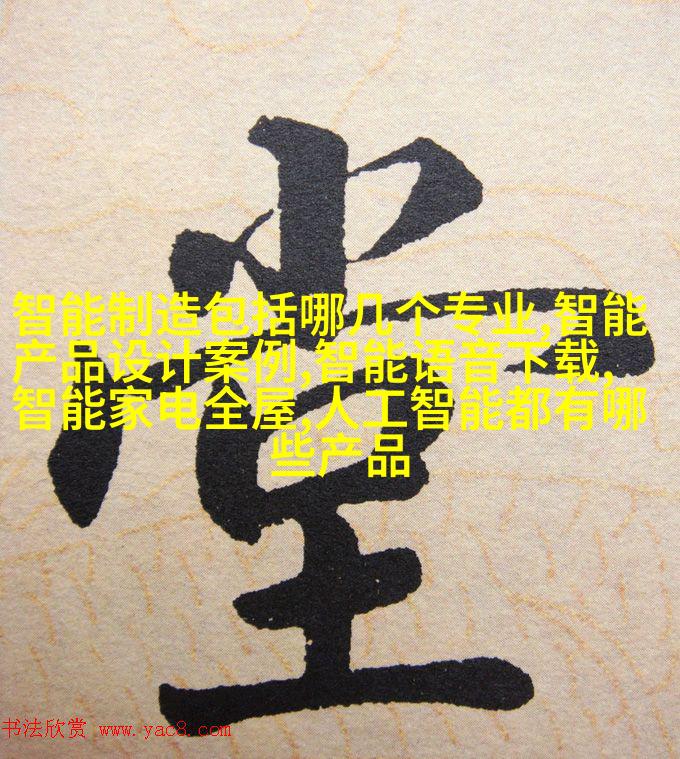 堂
智能制造包括哪几个专业,智能
产品设计案例,智能语音下载,
智能家电全屋,人工智能都有哪
些产品
书法欣赏 www.yac8.com